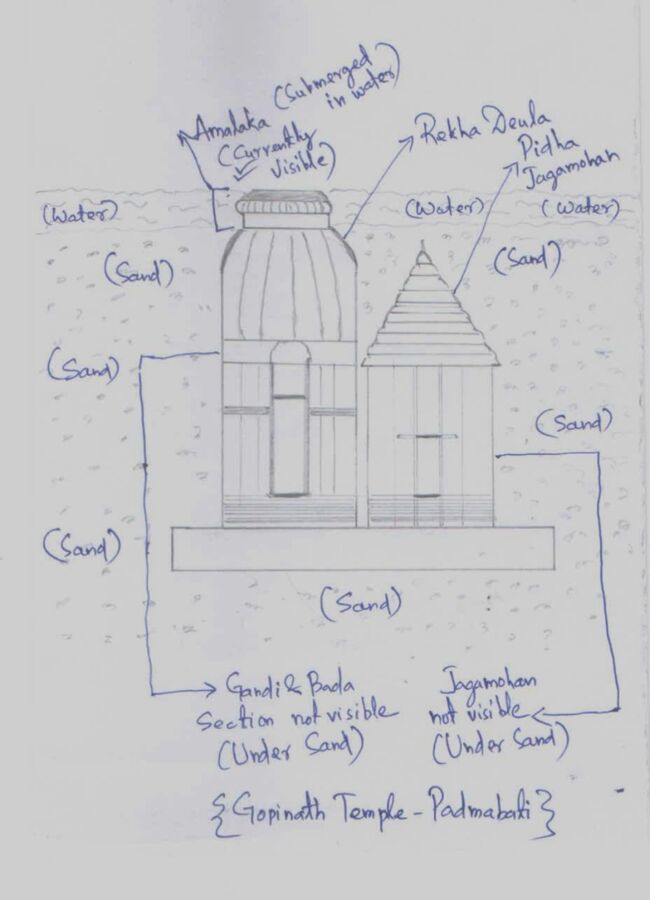 Amalaka (Submerged
in water)
(Currently
visible)
Rekha Deula
Pidha
Jagamohan
(Water)
(Water)
(Water)
(Sand)
(Sand)
(Sand)
(Sand)
(Sand)
(Sand)
Gandi & Bada
Section not visible
(Under Sand)
Jagamohan
not visible
(Under Sand)
{Gopinath Temple - Padmabati}